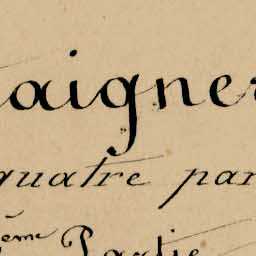 taigner
quatre par
ème Partie